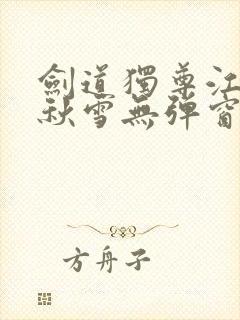 劍道獨尊江
秋雪無彈窗
方舟子